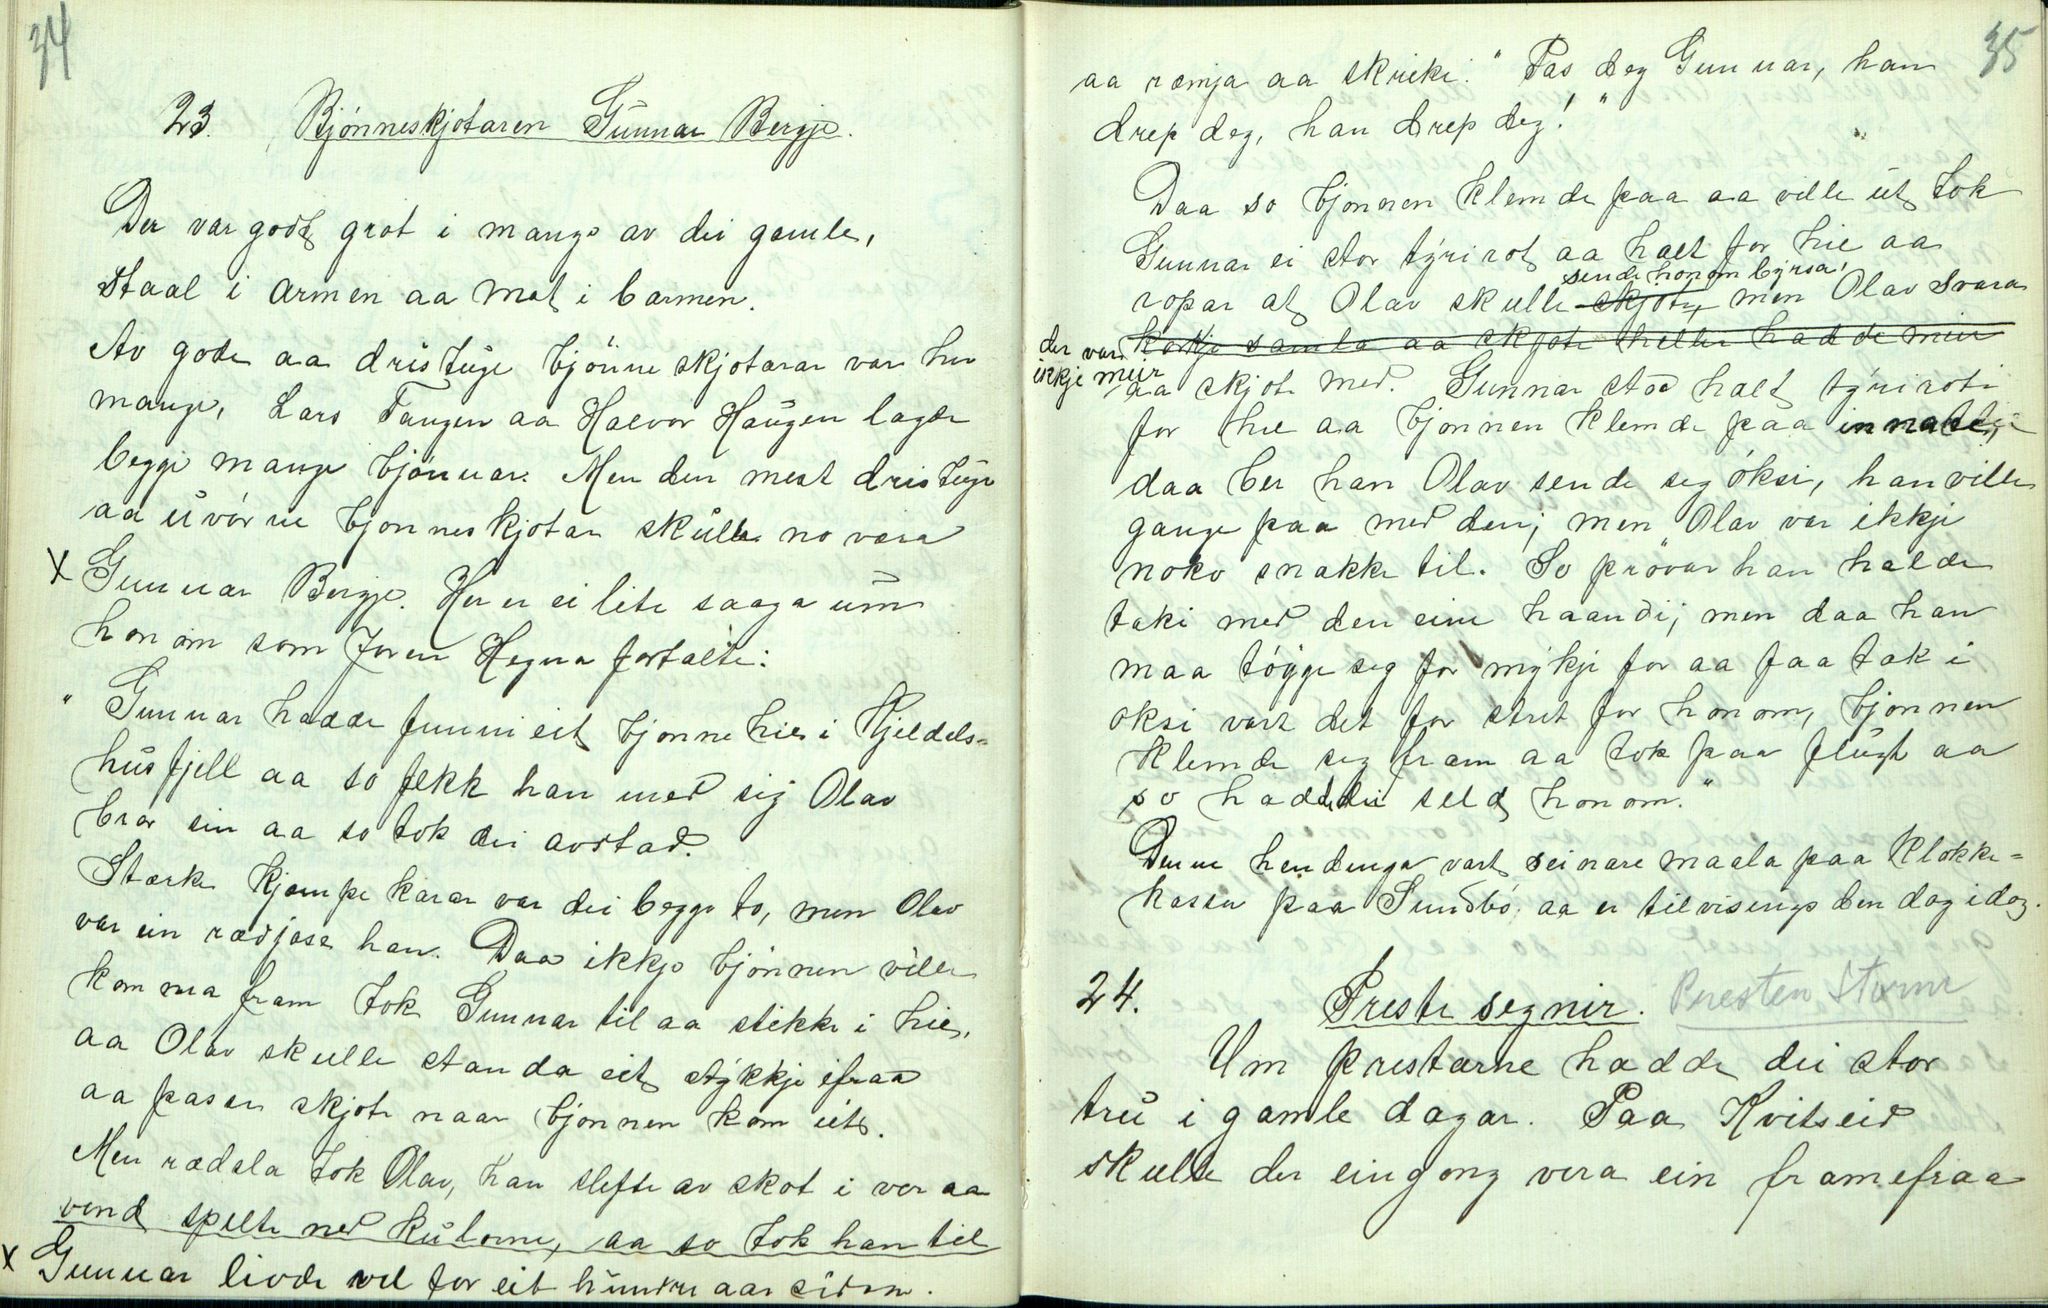 34
23. Bjónneskjotaren Gunnar Bergje.
Der var godt grot i mange av dei gamle,
staal i armen aa mot i barmen.
Av gode aa dristuge bjönneskjotarar var her
mange, Lars Tangen aa Halvor Haugen lagde
beggi mange bjönnar. Men den mest dristuge
aa uvörne bjonneskjotar skulle no vera
X Gunnar Bergje. Her er ei lite saaga um
honom som Joren Hegna fortalte:
" Gunnar hadde funni eit bjonnehie i Kjeldals=
husfjell aa so fekk han med sig Olav
bror sin aa so tok dei avstad.
Stærke kjæmpekarar var dei beggo to, men Olav
var ein rædjase han. Daa ikkje bjönnen ville
komma fram tok Gunnar til aa stikke i hie,
aa Olav skulle standa eit stykkje ifraa
aa passa skjote naar bjonnen kom ut.
Men rædsla tok Olav, han slefte av skot i ver aa
vind spelte ned kulorne, aa so tok han til
X Gunnar livde vel for eit hundre aar sidan.
35
aa ræmja aa skrieke: "Pas deg Gunnar, han
drep deg, han drep deg!"
Daa so bjonnen klemde paa aa ville ut tok
Gunnar ei stor tyrirot aa heldt for hie aa
sende honom byrsa,
ropar at Olav skulle skjote, men Olav svara
korkje samla aa skjote heller hadde meir
der var ikkje meir
aa skjote med. Gunnar stod heldt tyriroti
for hie aa bjonnen klemde paa innate,
daa ber han Olav sende seg öksi, han ville
gange paa med den; men Olav var ikkje
noko snakke til. So prövar han halde
taki med den eine haandi; men daa han
maa töyge seg for mykje for aa faa tak i
oksi vart det for stridt for honom, bjonnen
klemde seg fram aa tok paa flugt aa
so hadde dei seld honom."
Denne hendinga vart seinare maala paa klokke=
kassa paa Sundbö, aa er tilvisings den dag idag.
24. Preste segnir. Presten Storm
Um prestarne hadde dei stor
tru i gamle dagar. Paa Kvitseid
skulle der eingong vera ein framefraa